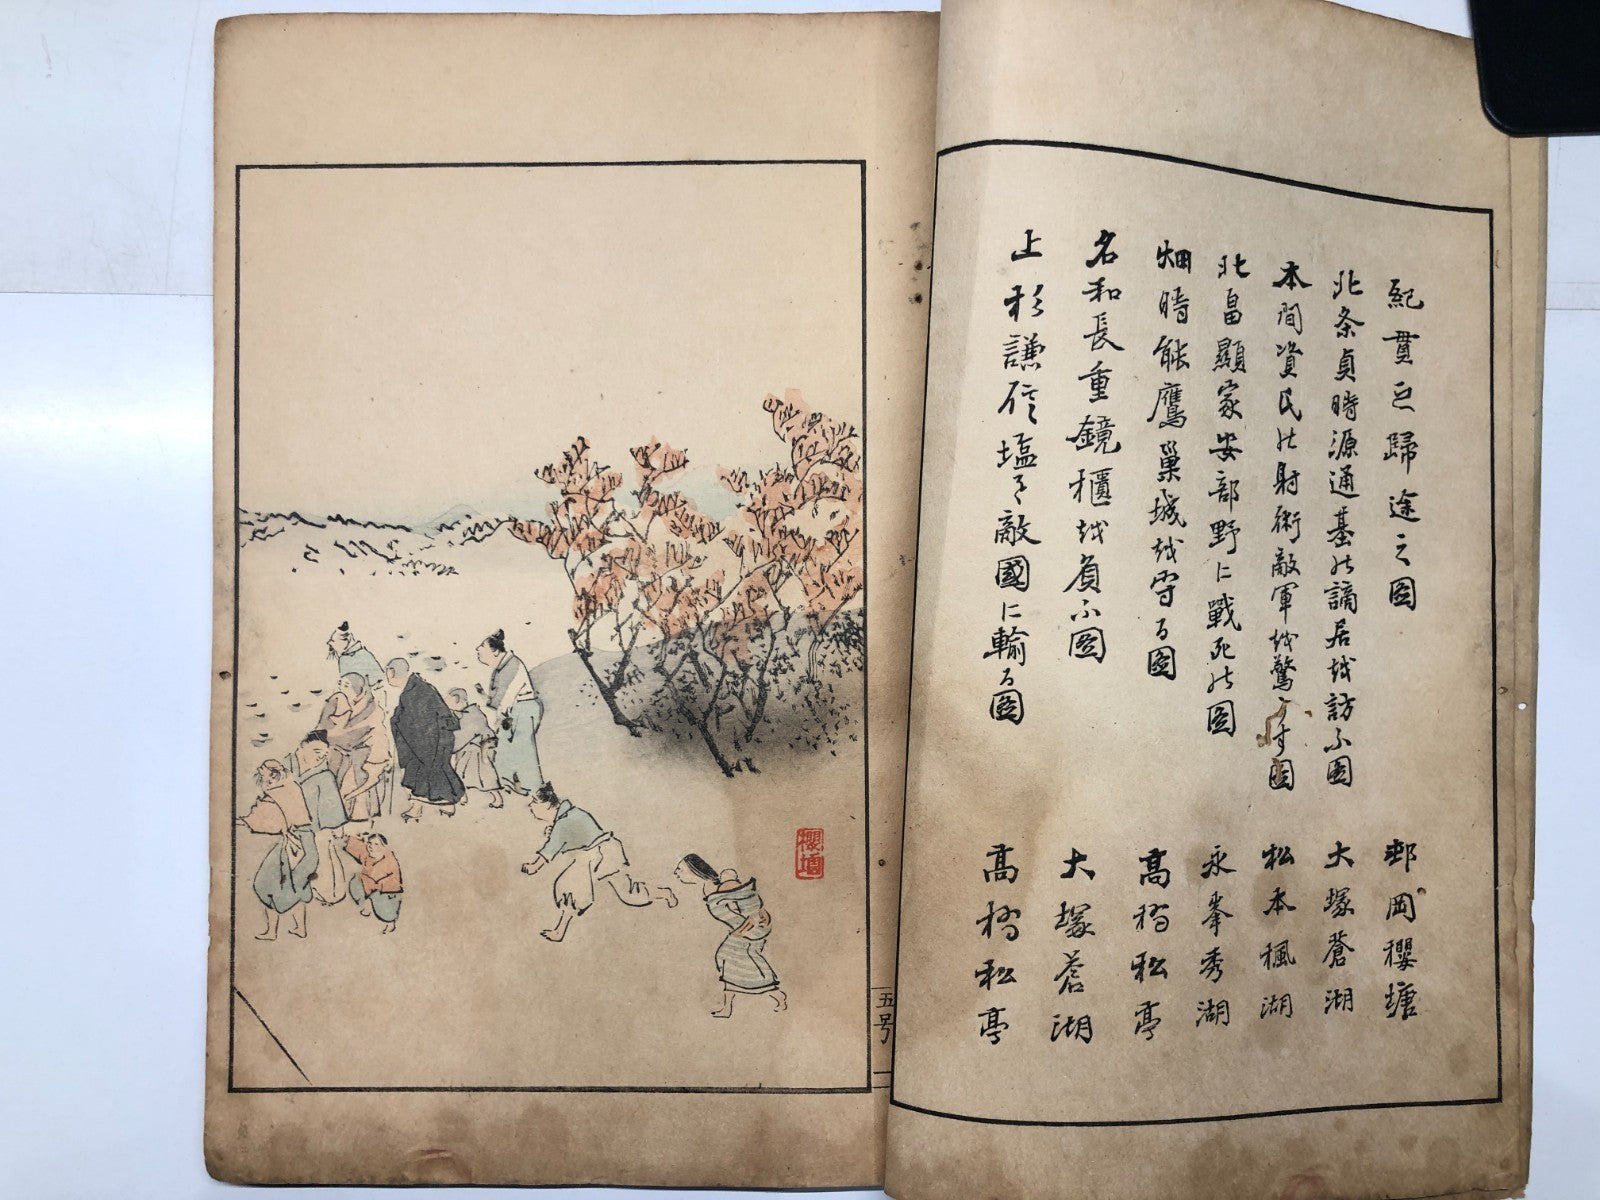 紀貫之歸途之圖
北条貞時源通基の謫居越訪ふ圖
本間資氏の射術敵軍越驚す圖
北畠顯家安部野に戰死の圖
畑時能鷹巣城越守る圖
名和長重鏡櫃越負ふ圖
上杉謙信塩を敵國に輸る圖
邨岡櫻塘
大塚蒼湖
松本楓湖
永峯秀湖
高橋松亭
大塚蒼湖
高橋松亭
櫻塘
五号